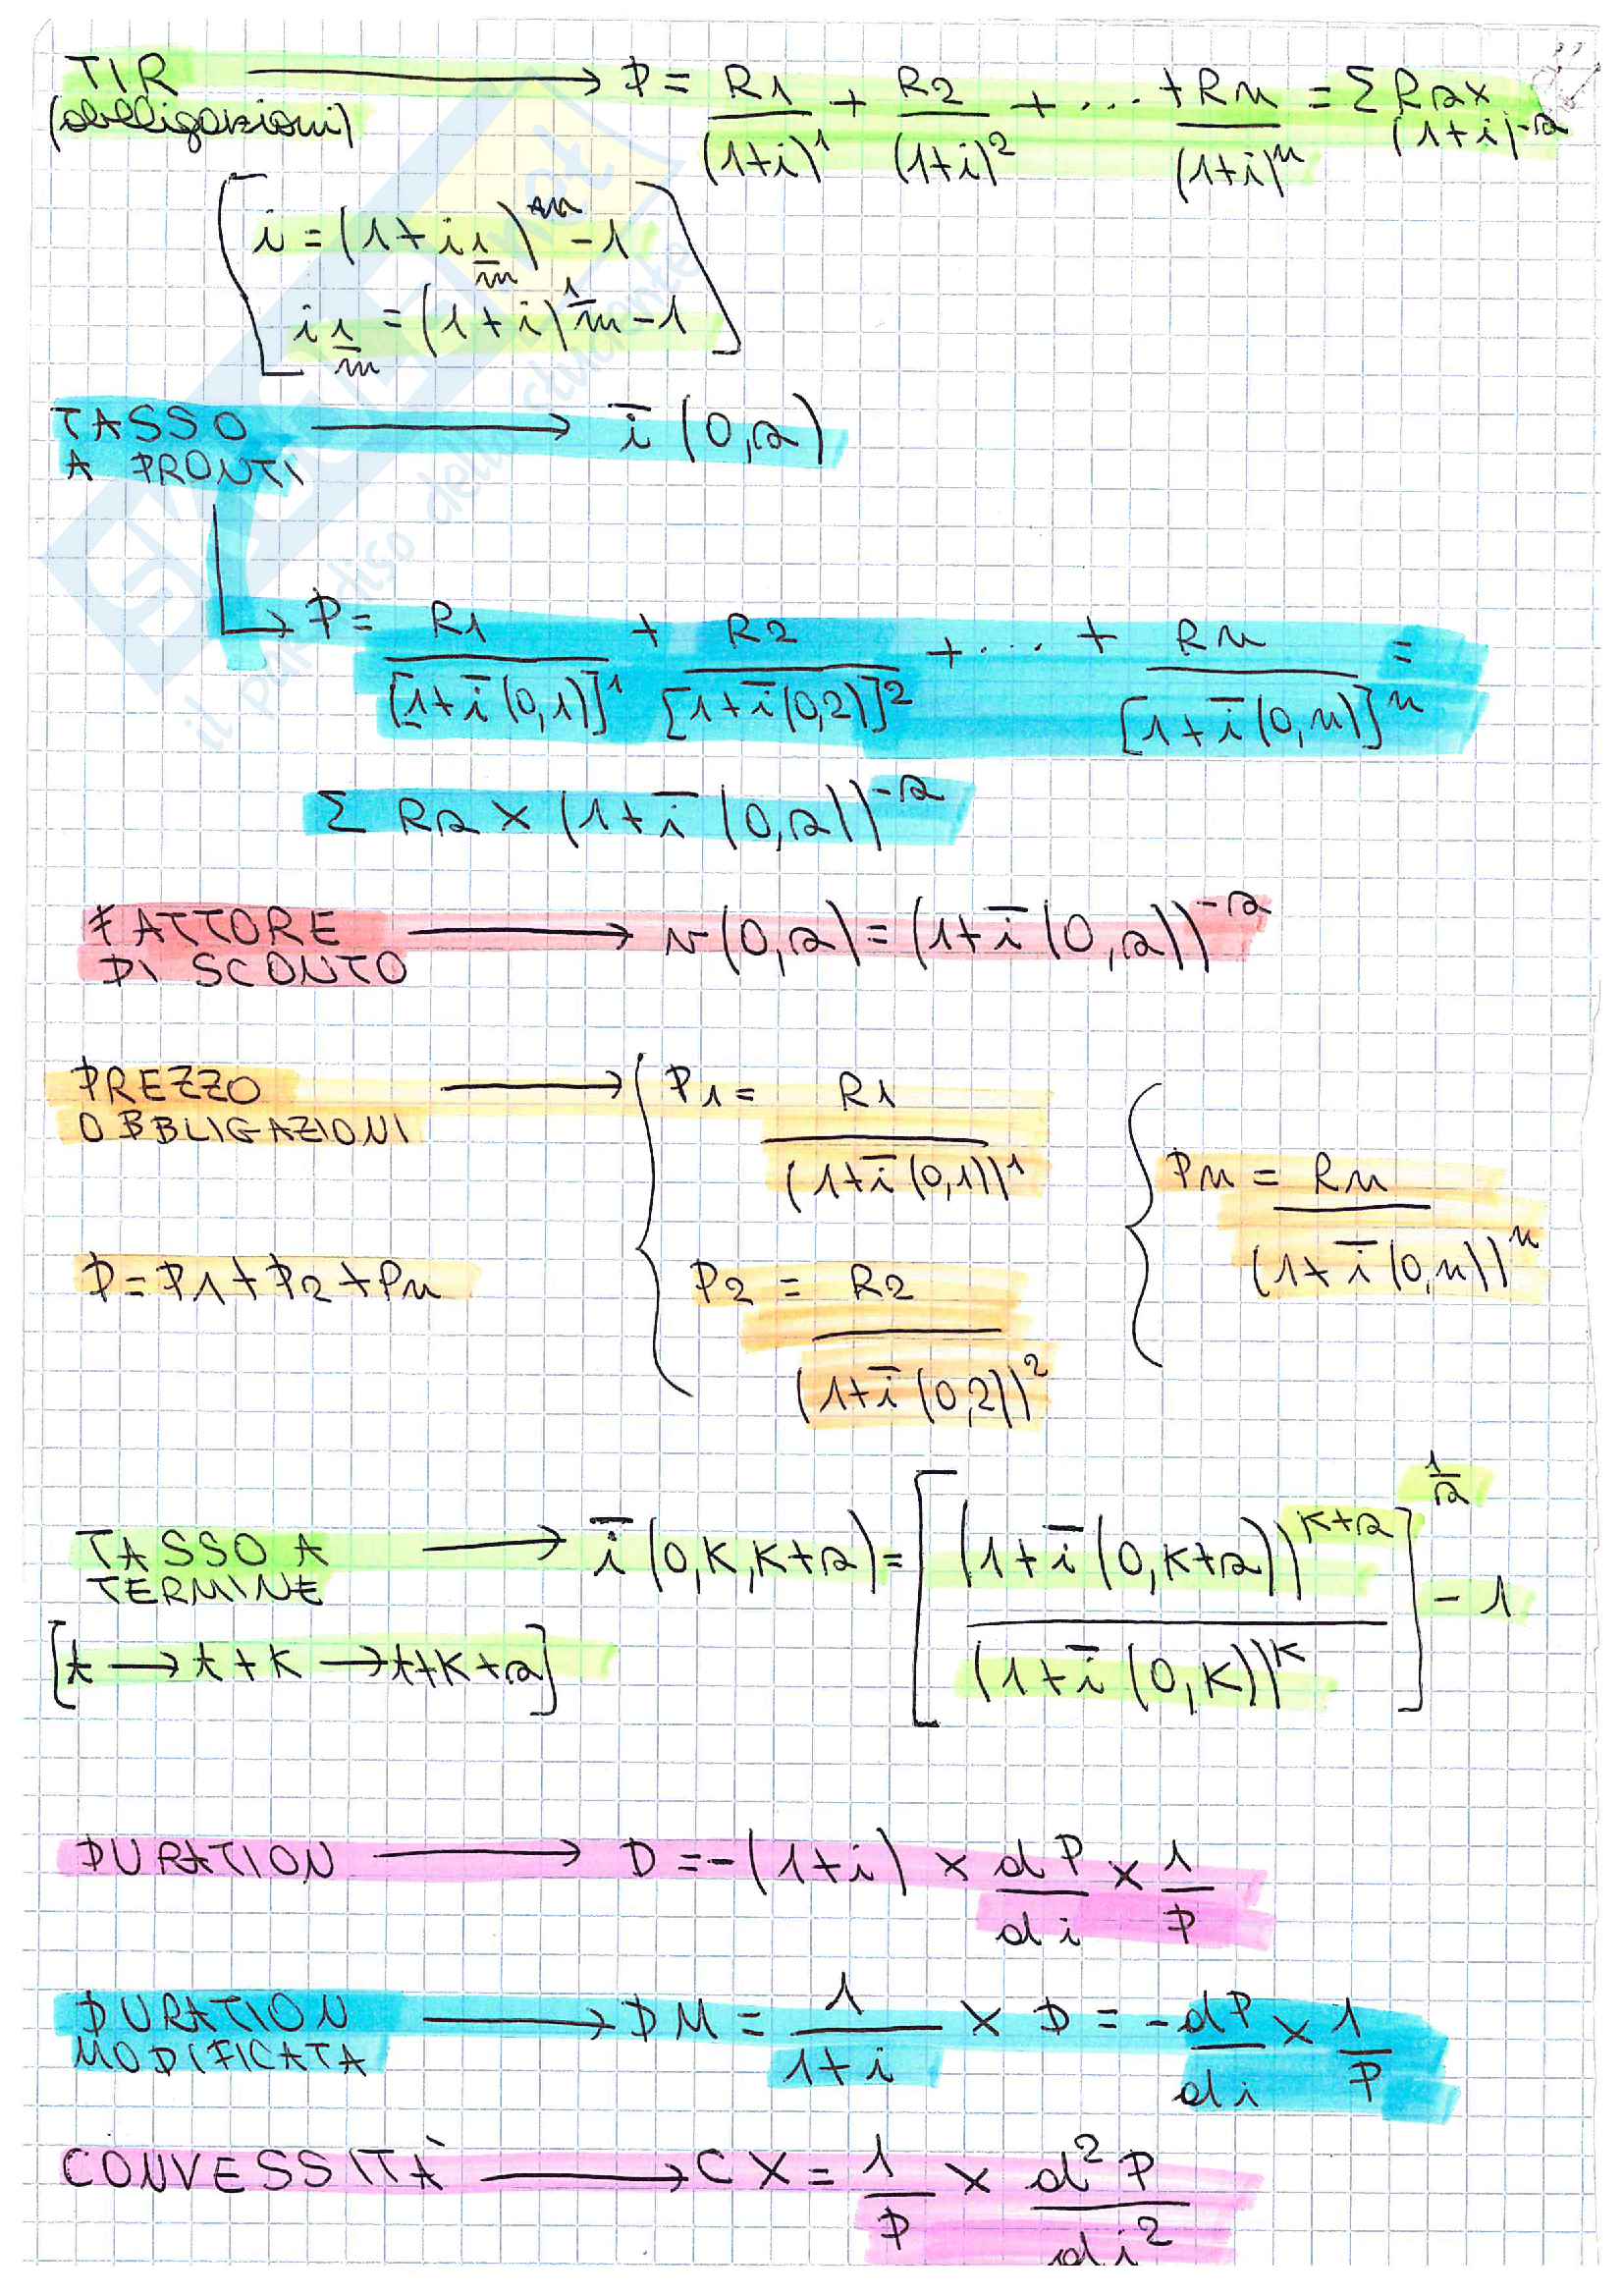 TIR (obbligazioni) → P = R1/(1+i)^1 + R2/(1+i)^2 + ... + Rn/(1+i)^n = Σ Rr x (1+i)^-r
[i = (1 + i 1/m)^m - 1
i 1/m = (1+i)^1/m - 1]
TASSO A PRONTI → ī (0,r)
→ P = R1/[1+ī(0,1)]^1 + R2/[1+ī(0,2)]^2 + ... + Rn/[1+ī(0,n)]^n =
Σ Rr x (1+ī (0,r))^-r
FATTORE DI SCONTO → v(0,r) = (1+ī (0,r))^-r
PREZZO OBBLIGAZIONI → { P1 = R1/(1+ī(0,1))^1
P = P1 + P2 + Pn
P2 = R2/(1+ī(0,2))^2
{ Pn = Rn/(1+ī(0,n))^n
TASSO A TERMINE → ī (0,K,K+r) = [(1+ī(0,K+r))^K+r/(1+ī(0,K))^K]^1/r - 1
[t → t+K → t+K+r]
DURATION → D = -(1+i) x dP/di x 1/P
DURATION MODIFICATA → DM = 1/1+i x D = -dP/di x 1/P
CONVESSITÀ → CX = 1/P x d²P/di²